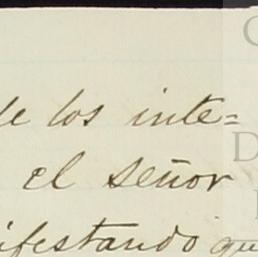 de los inte=
el señor
ifestando qu